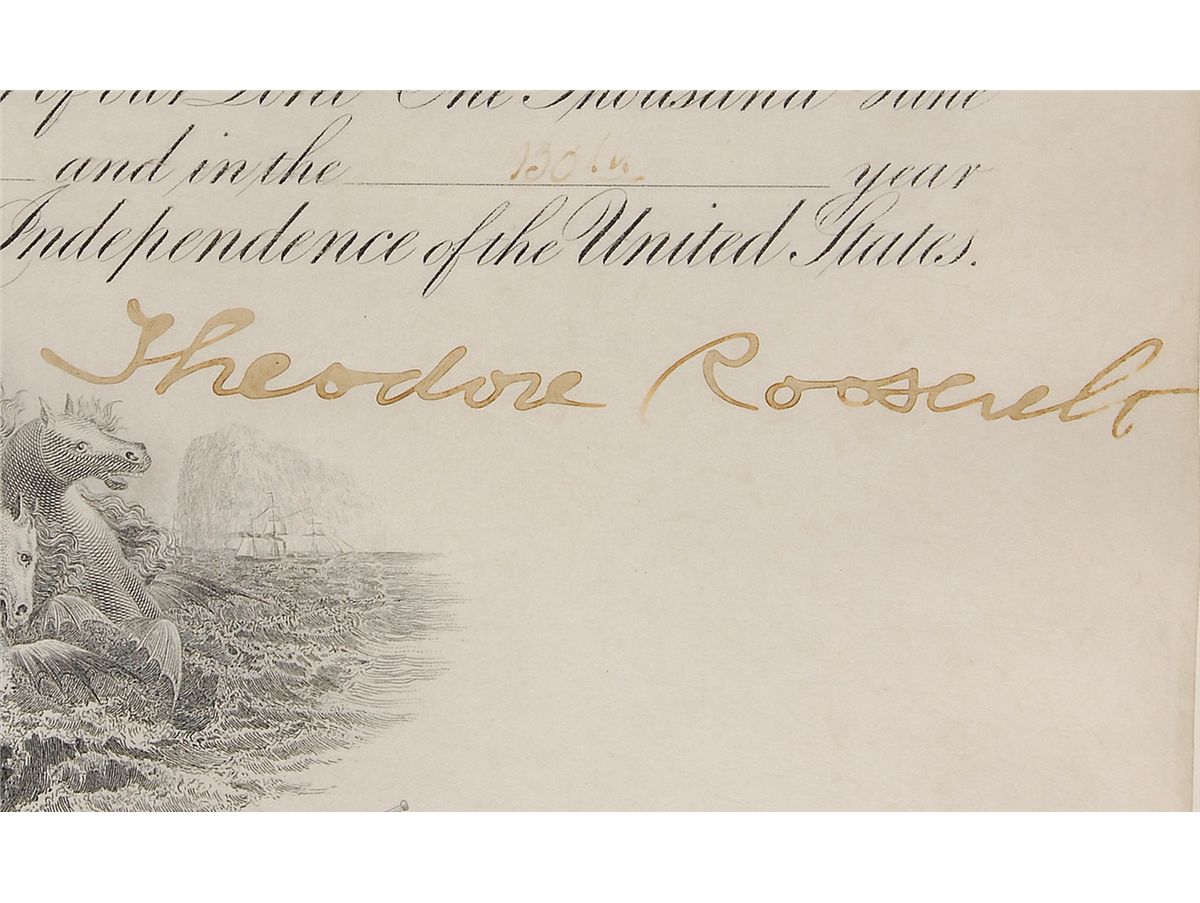 of our Lord One Thousand Nine
and in the 130th year
Independence of the United States.
Theodore Roosevelt